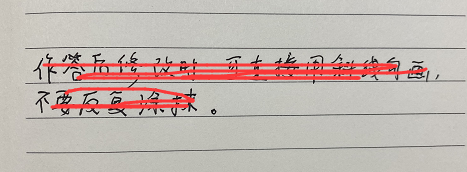 作答后修改时,可直接用斜线勾画,
不要反复涂抹。